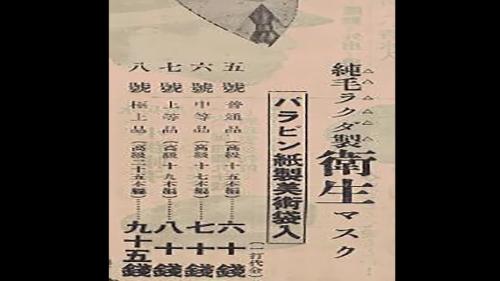 純毛ラクダ製衛生マスク
パラピン紙製美術袋入
(一打代金)
五號 普通品(高級十五本編)……六十錢
六號 中等品(高級十七本編)……七十錢
七號 上等品(高級十九本編)……八十錢
八號 極上品(高級二十五本編)……九十五錢